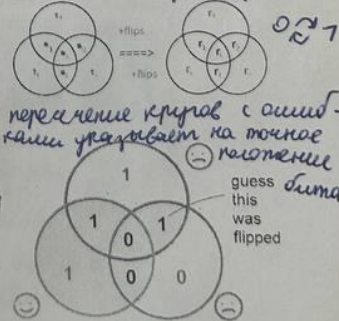 +flips
====>
+flips
0 ⇄ 1
пересечение кругов с ошиб-
ками указывает на точное
положение
бита
guess
this
was
flipped
1
1 1
0
1 0 0